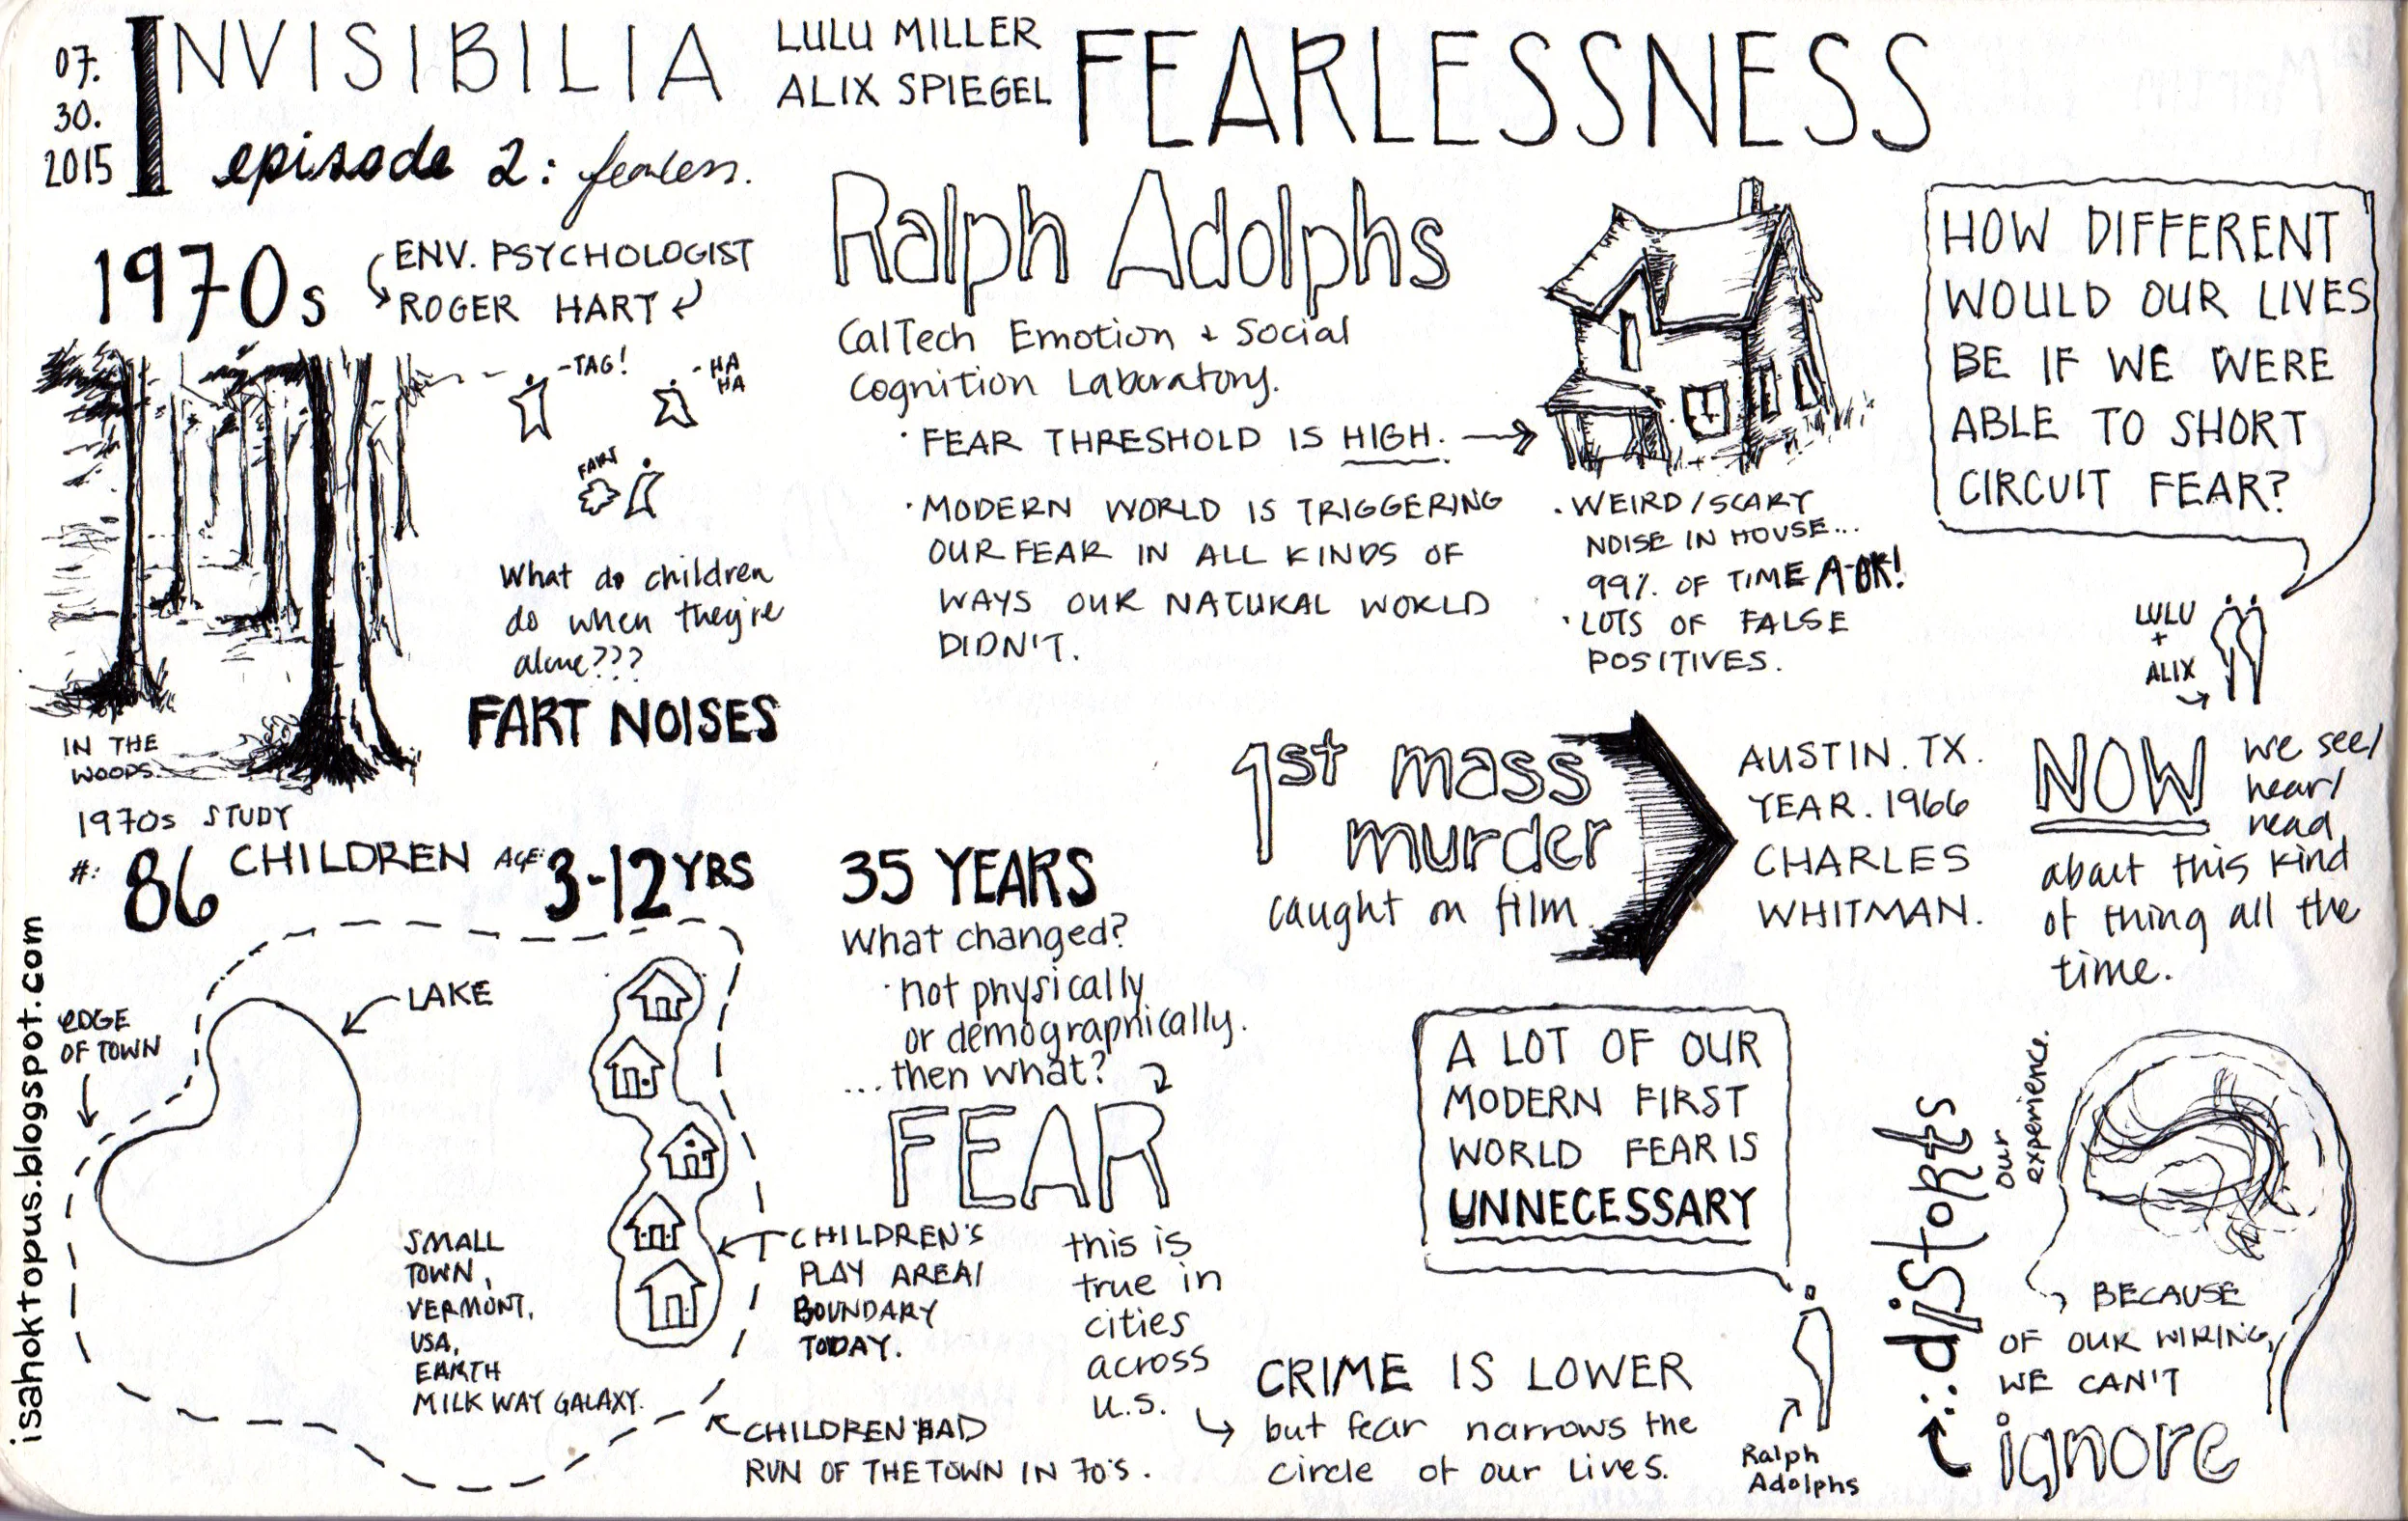 07.
30.
2015
INVISIBILIA
episode 2: fearless.
LULU MILLER
ALIX SPIEGEL
FEARLESSNESS
1970s
ENV. PSYCHOLOGIST
ROGER HART
-TAG!
-HA
HA
FART
What do children
do when they're
alone???
FART NOISES
IN THE
WOODS.
1970s STUDY
#: 86 CHILDREN AGE: 3-12 YRS
EDGE
OF TOWN
LAKE
SMALL
TOWN,
VERMONT,
USA,
EARTH
MILK WAY GALAXY.
CHILDREN'S
PLAY AREA/
BOUNDARY
TODAY.
CHILDREN HAD
RUN OF THE TOWN IN 70'S.
isahoktopus.blogspot.com
Ralph Adolphs
CalTech Emotion + Social
Cognition Laboratory.
· FEAR THRESHOLD IS HIGH.
· MODERN WORLD IS TRIGGERING
OUR FEAR IN ALL KINDS OF
WAYS OUR NATURAL WORLD
DIDN'T.
· WEIRD/SCARY
NOISE IN HOUSE...
99% OF TIME A-OK!
· LOTS OF FALSE
POSITIVES.
HOW DIFFERENT
WOULD OUR LIVES
BE IF WE WERE
ABLE TO SHORT
CIRCUIT FEAR?
LULU
+
ALIX
35 YEARS
What changed?
· not physically
or demographically.
...then what?
FEAR
this is
true in
cities
across
U.S.
CRIME IS LOWER
but fear narrows the
circle of our lives.
1st mass
murder
caught on film.
AUSTIN. TX.
YEAR. 1966
CHARLES
WHITMAN.
NOW we see/
hear/
read
about this kind
of thing all the
time.
A LOT OF OUR
MODERN FIRST
WORLD FEAR IS
UNNECESSARY
Ralph
Adolphs
BECAUSE
OF OUR WIRING,
WE CAN'T
ignore
∴ distorts
our
experience.